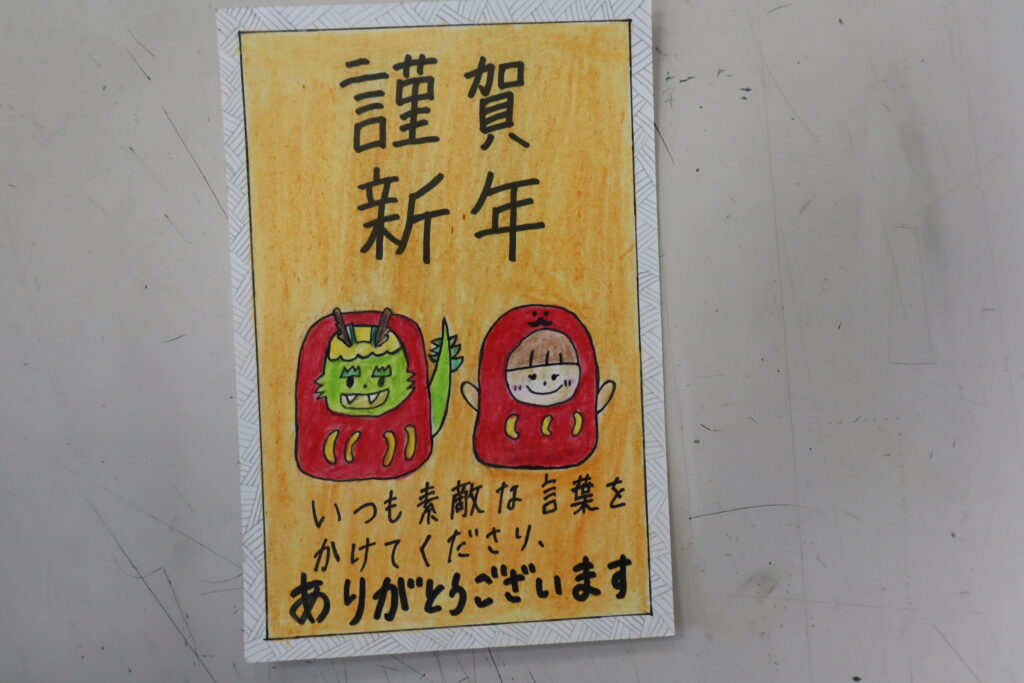 謹賀
新年
いつも素敵な言葉を
かけてくださり、
ありがとうございます